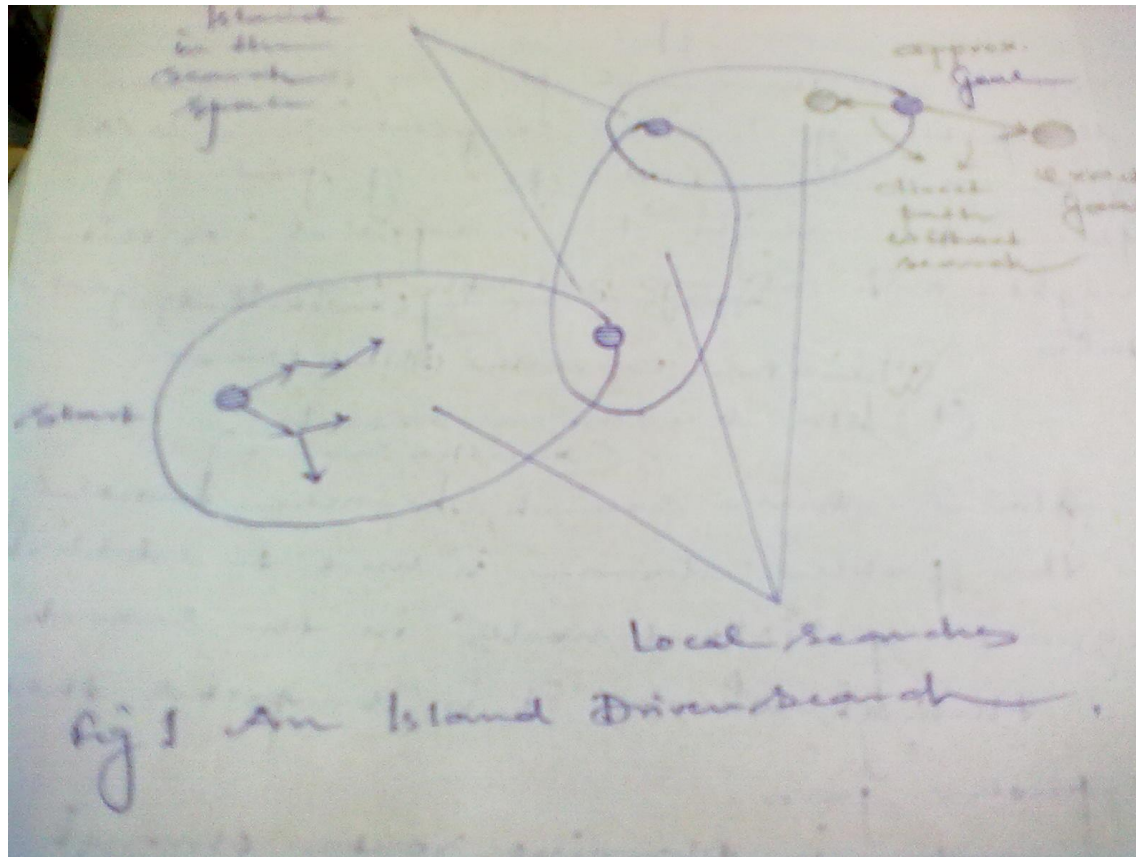 Island
in the
search
space
approx.
goal
exact
goal
direct
path
without
search
start
Local searches
Fig 1 An Island Driven search.